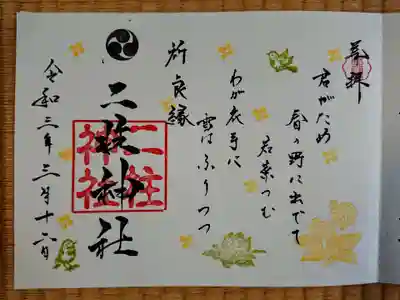 奉拝
君がため
春の野に出でて
若菜つむ
わが衣手に
雪はふりつつ
祈良縁
二柱神社
二柱
神社
令和三年三月十六日